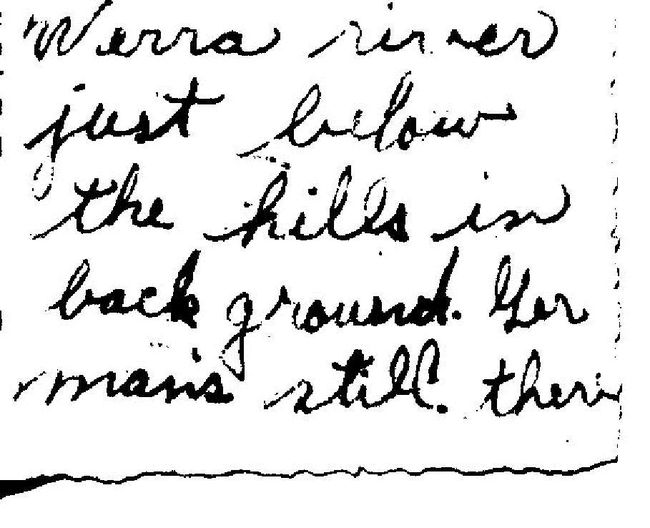 Werra river
just below
the hills in
back ground. Ger
mans still there